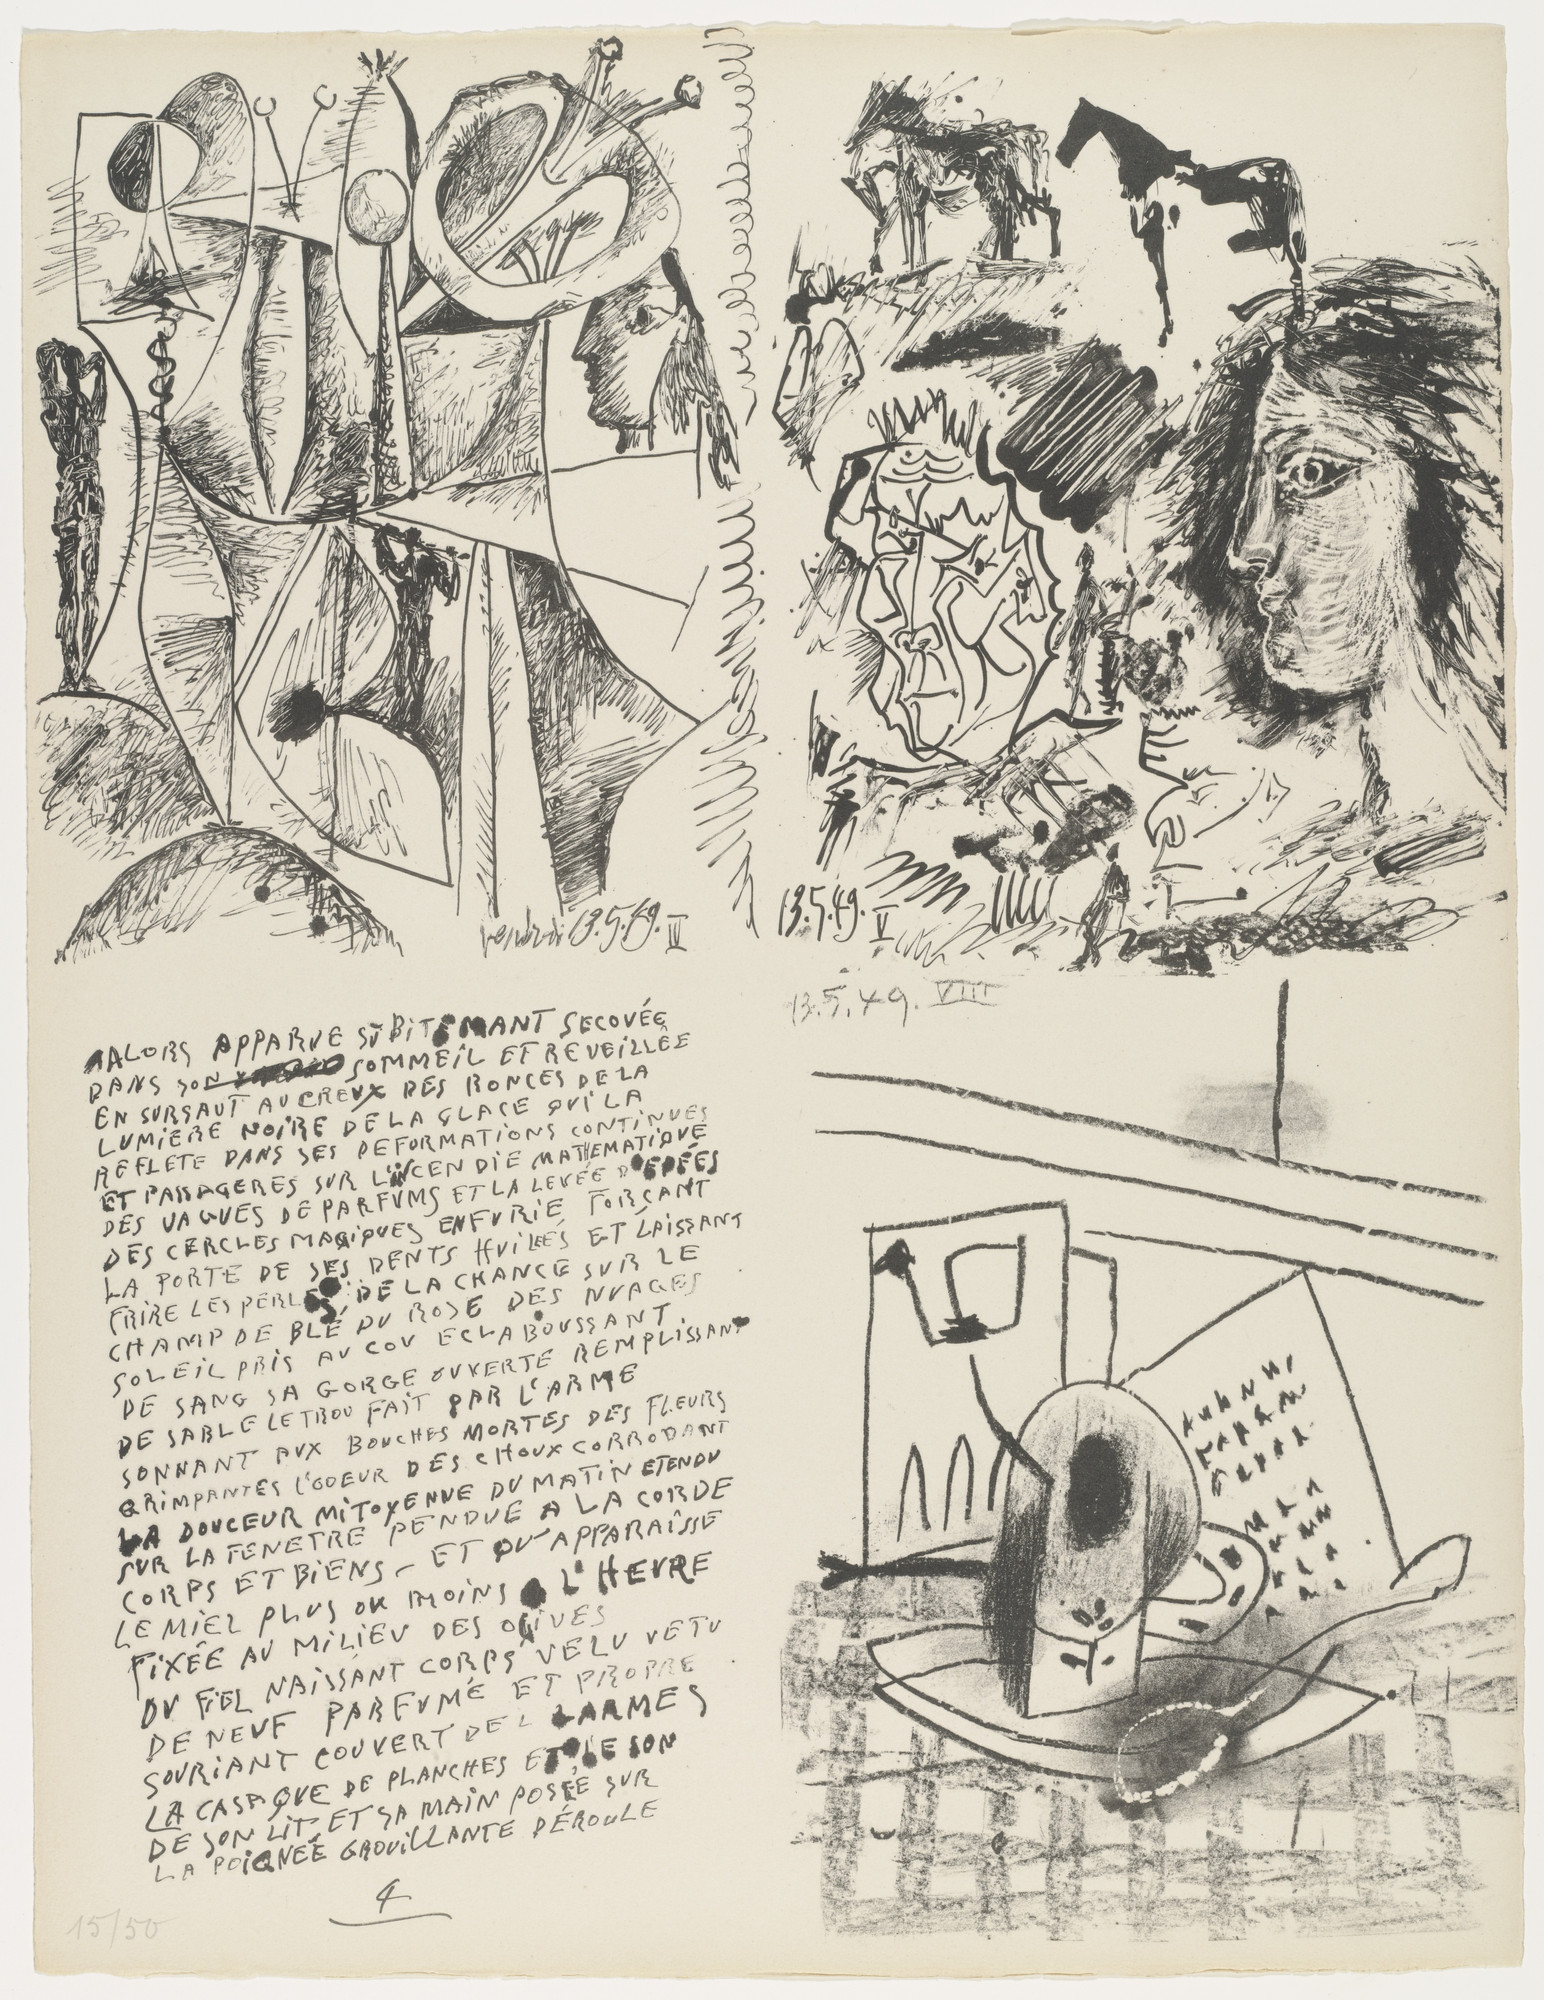 vendredi 13.5.49. IV
13.5.49. V
13.5.49. VIII
ALORS APPARUE SUBITEMANT SECOUÉE
DANS SON SOMMEIL ET REVEILLÉE
EN SURSAUT AU CREUX DES RONCES DE LA
LUMIERE NOIRE DE LA GLACE QUI LA
REFLETE DANS SES DEFORMATIONS CONTINUES
ET PASSAGERES SUR L'INCENDIE MATEMATIQUE
DES VAGUES DE PARFUMS ET LA LEVÉE D'EPÉES
DES CERCLES MAGIQUES EN FURIE FORÇANT
LA PORTE DE SES DENTS HUILÉES ET LAISSANT
FRIRE LES PERLES DE LA CHANCE SUR LE
CHAMP DE BLÉ DU ROSE DES NUAGES
SOLEIL PRIS AU COU ECLABOUSSANT
DE SANG SA GORGE OUVERTE REMPLISSANT
DE SABLE LE TROU FAIT PAR L'ARME
SONNANT AUX BOUCHES MORTES DES FLEURS
GRIMPANTES L'ODEUR DES CHOUX CORRODANT
LA DOUCEUR MITOYENNE DU MATIN ETENDU
SUR LA FENETRE PENDUE A LA CORDE
CORPS ET BIENS - ET QU'APPARAÎSSE
LE MIEL PLUS OU MOINS L'HEURE
FIXÉE AU MILIEU DES OLIVES
DU FIEL NAISSANT CORPS VELU VETU
DE NEUF PARFUMÉ ET PROPRE
SOURIANT COUVERT DE LARMES
LA CASAQUE DE PLANCHES ET LE SON
DE SON LIT ET SA MAIN POSÉE SUR
LA POIGNÉE GROUILLANTE DÉROULE
4
15/50